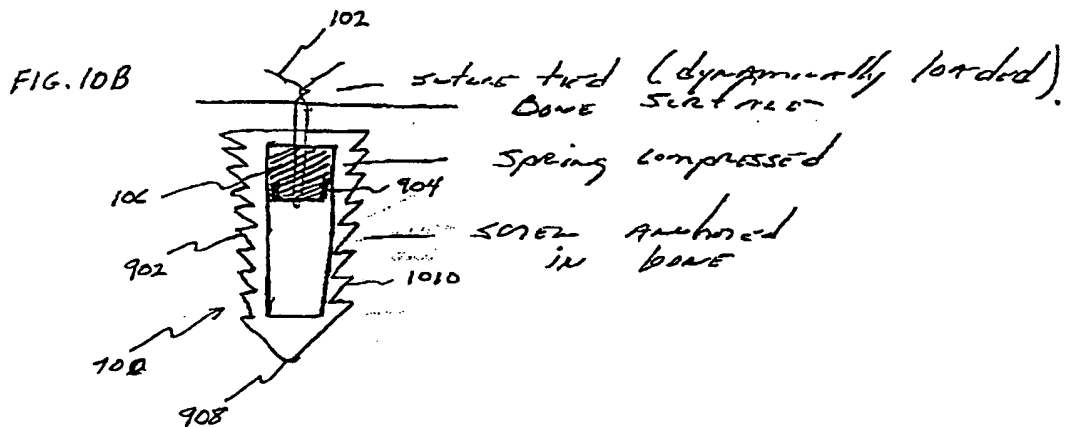 102
FIG. 10B
suture tied (dynamically loaded).
Bone surface
spring compressed
106
904
screw anchored
in bone
902
1010
908